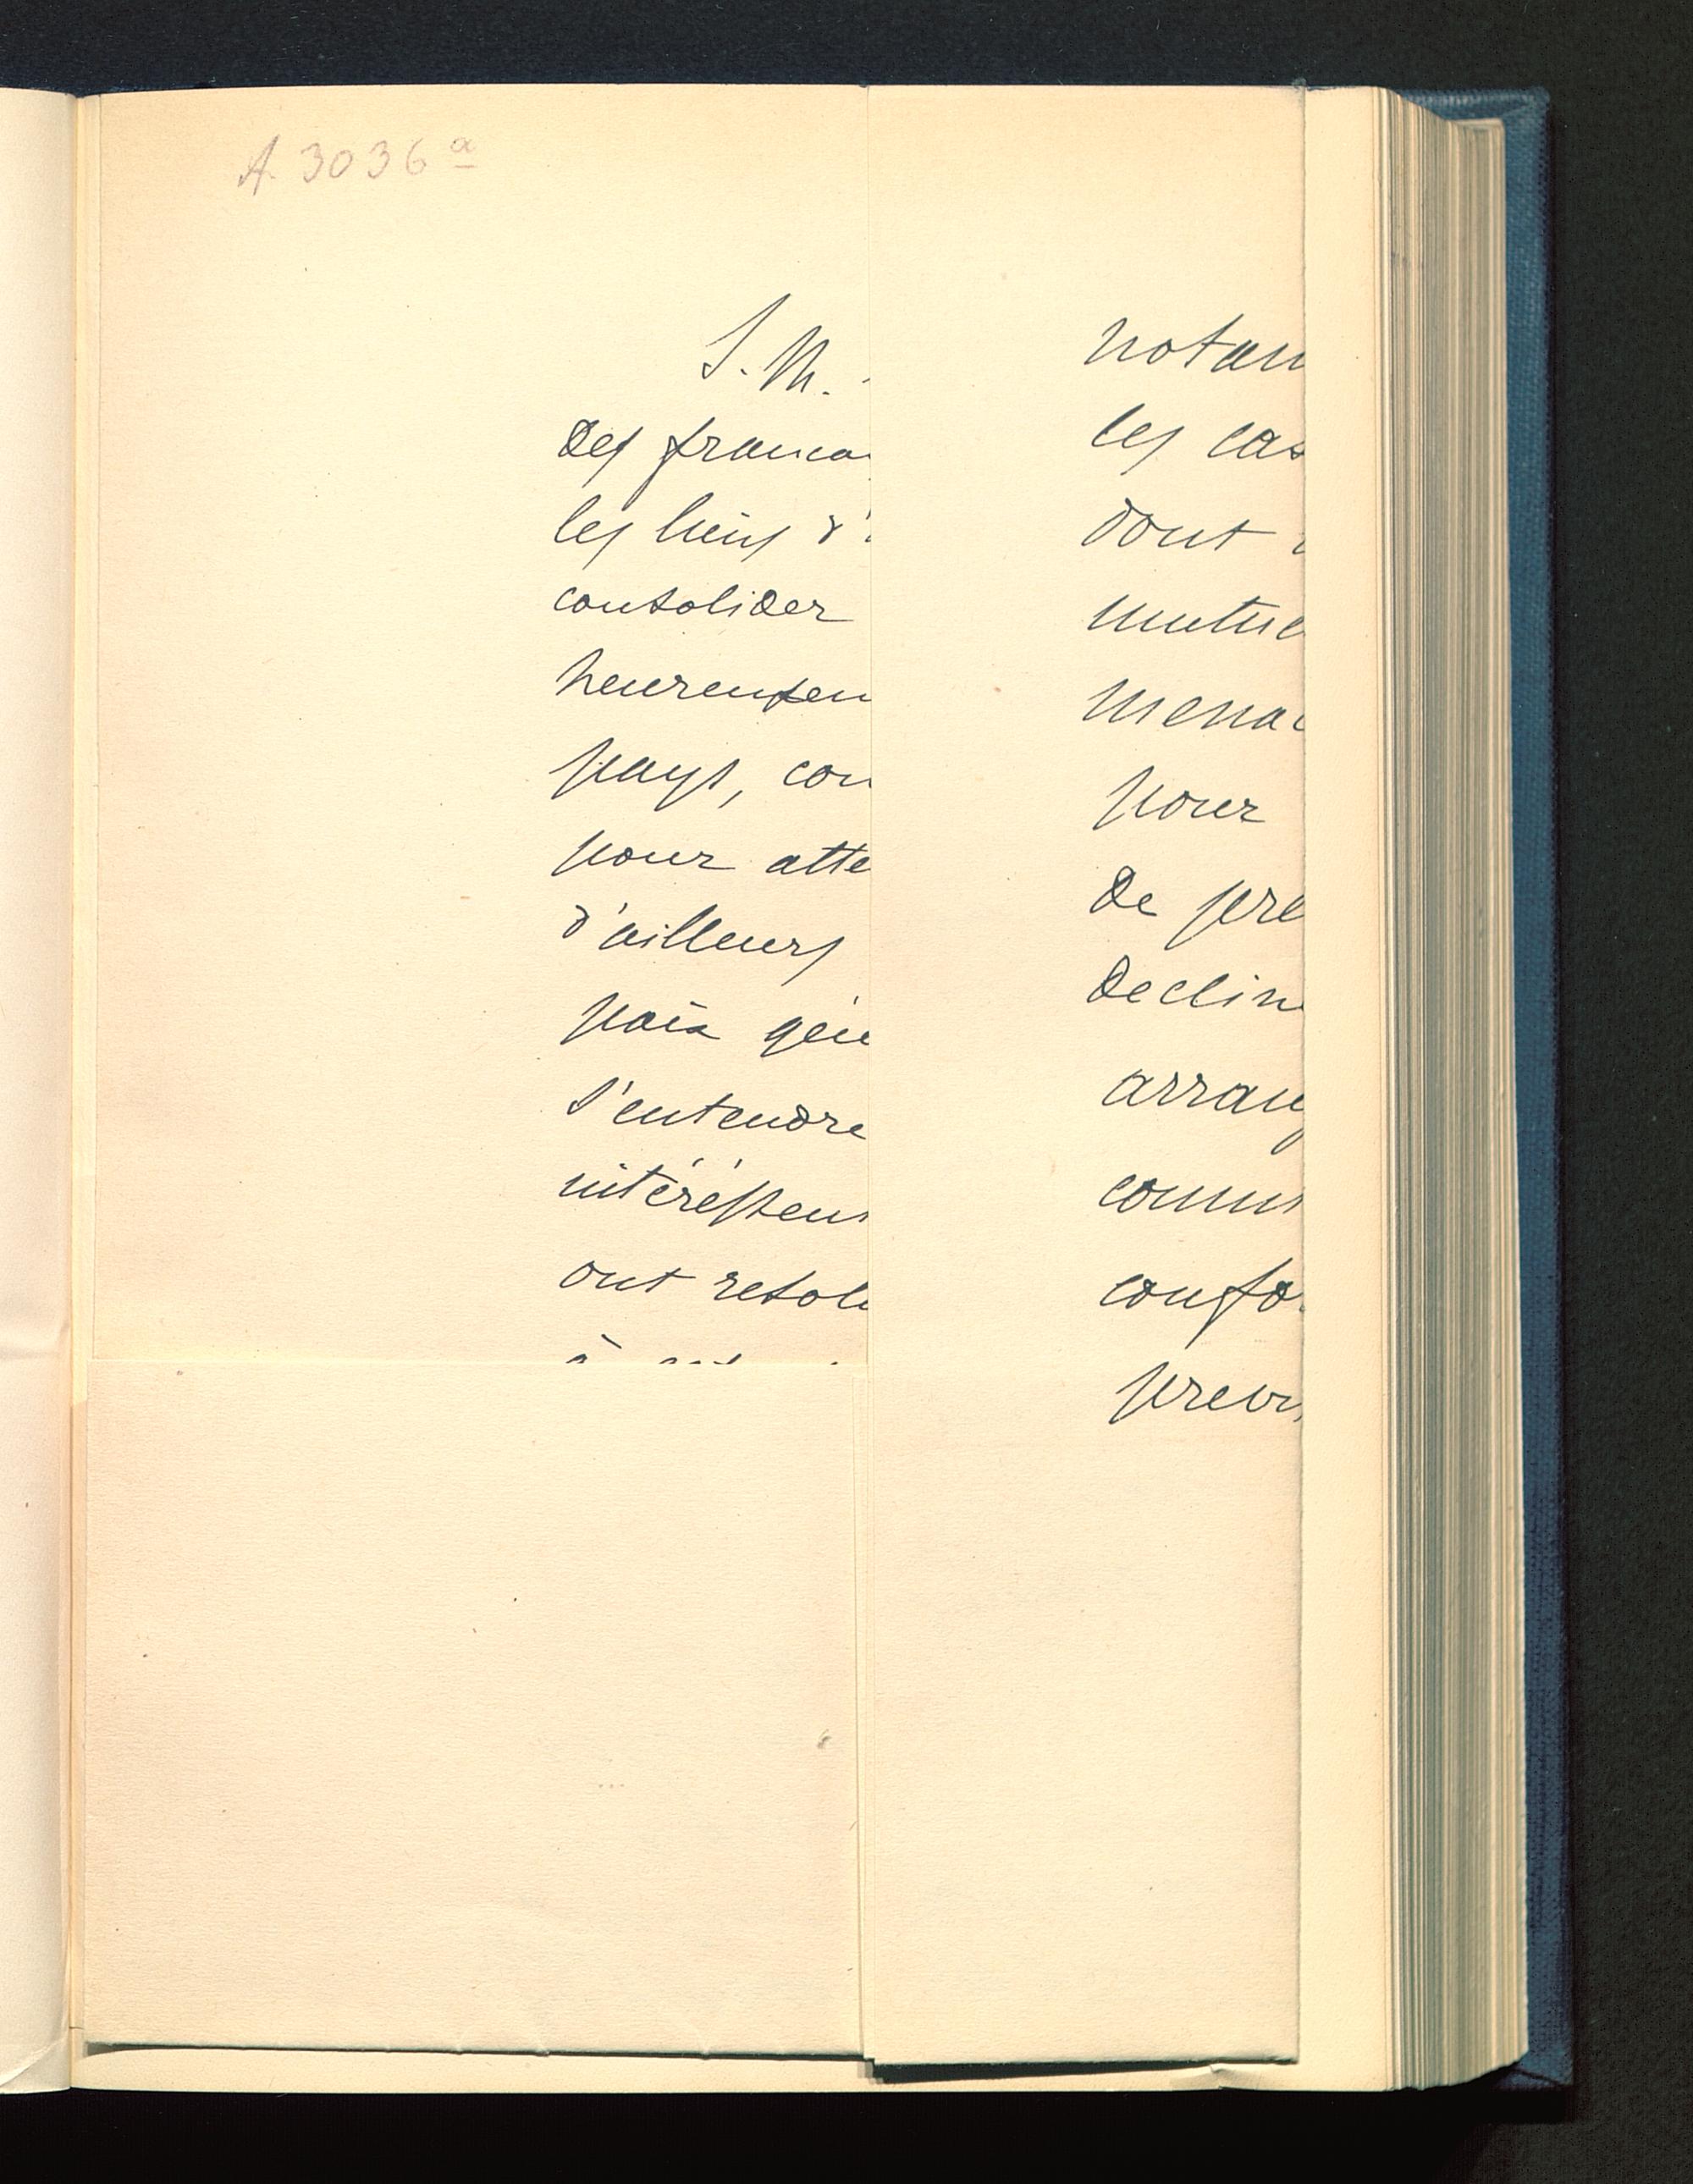 A. 3036 a
S. M.
des francai
les liens d'
consolider
heureusem
pays, con
pour atte
d'ailleurs
paix gén
s'entendre
intéressen
ont resolu
notam
les cas
dont
mutue
menac
pour
de pre
declin
arrang
commu
confo
previ